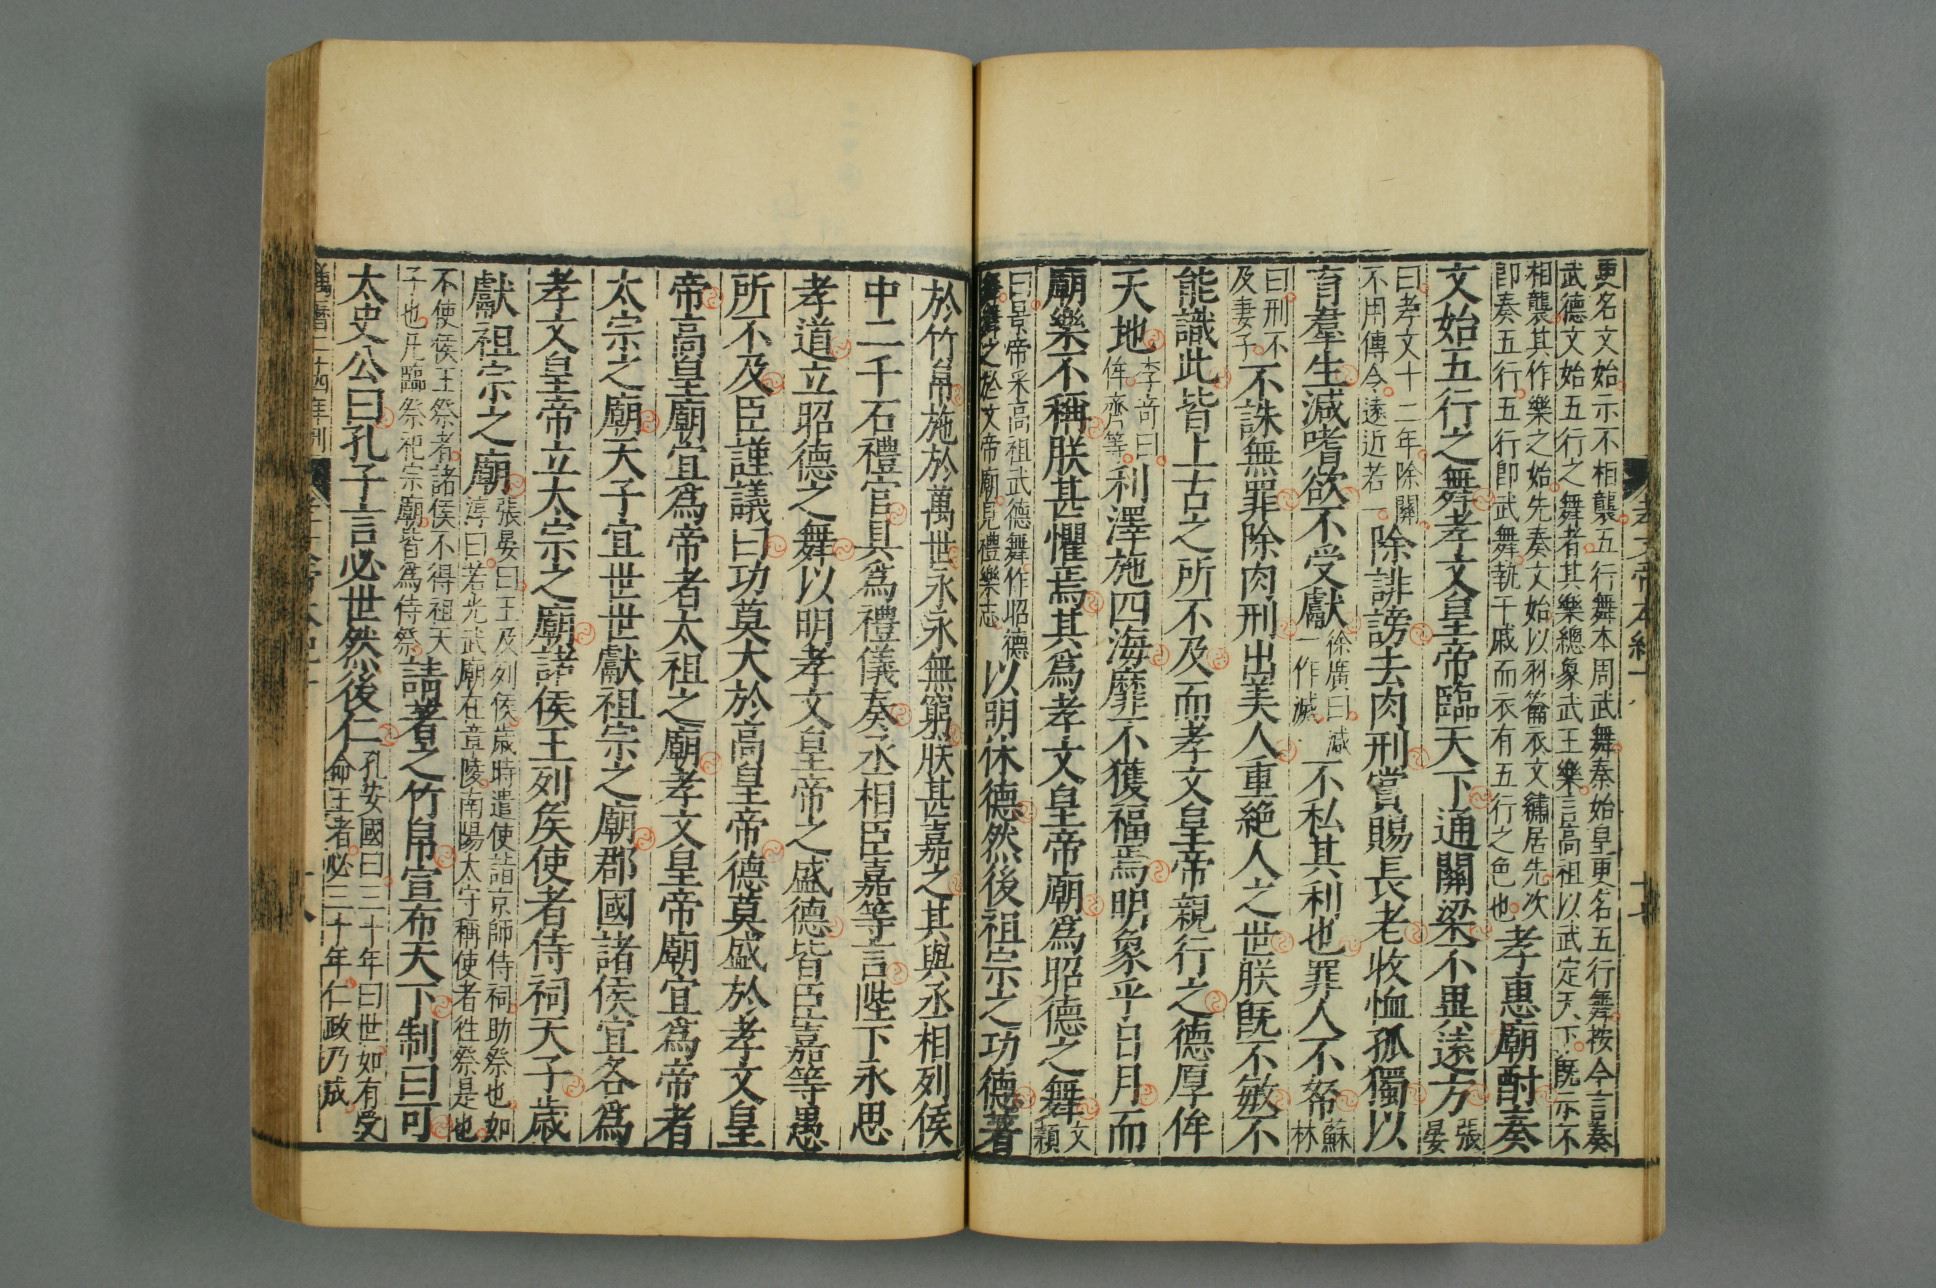 更名文始示不相襲五行舞本周武舞秦始皇更名五行舞按今言奏
武德文始五行之舞者其樂總象武王樂言高祖以武定天下既示不
相襲其作樂之始先奏文始以羽籥衣文繡居先次
即奏五行五行即武舞執干戚而衣有五行之色也孝惠廟酎奏
文始五行之舞孝文皇帝臨天下通關梁不異遠方張晏
曰孝文十二年除關
不用傳令遠近若一除誹謗去肉刑賞賜長老收恤孤獨以
育羣生減嗜欲不受獻徐廣曰減一作滅不私其利也罪人不帑蘇林
曰刑不
及妻子不誅無罪除肉刑出美人重絕人之世朕既不敏不
能識此皆上古之所不及而孝文皇帝親行之德厚侔
天地李奇曰侔齊等利澤施四海靡不獲福焉明象乎日月而
廟樂不稱朕甚懼焉其為孝文皇帝廟為昭德之舞文穎
曰景帝采高祖武德舞作昭德
舞舞之於文帝廟見禮樂志以明休德然後祖宗之功德著
於竹帛施於萬世永永無窮朕甚嘉之其與丞相列侯
中二千石禮官具為禮儀奏丞相臣嘉等言陛下永思
孝道立昭德之舞以明孝文皇帝之盛德皆臣嘉等愚
所不及臣謹議曰功莫大於高皇帝德莫盛於孝文皇
帝高皇廟宜為帝者太祖之廟孝文皇帝廟宜為帝者
太宗之廟天子宜世世獻祖宗之廟郡國諸侯宜各為
孝文皇帝立太宗之廟諸侯王列侯使者侍祠天子歲
獻祖宗之廟張晏曰王及列侯歲時遣使詣京師侍祠助祭也如
淳曰若光武廟在章陵南陽太守稱使者往祭是也
不使侯王祭者諸侯不得祖天
子也凡臨祭祀宗廟皆為侍祭請著之竹帛宣布天下制曰可
太史公曰孔子言必世然後仁孔安國曰三十年曰世如有受
命王者必三十年仁政乃成
萬曆二十四年刊
孝文帝本紀十
十八
孝文帝本紀十
十七